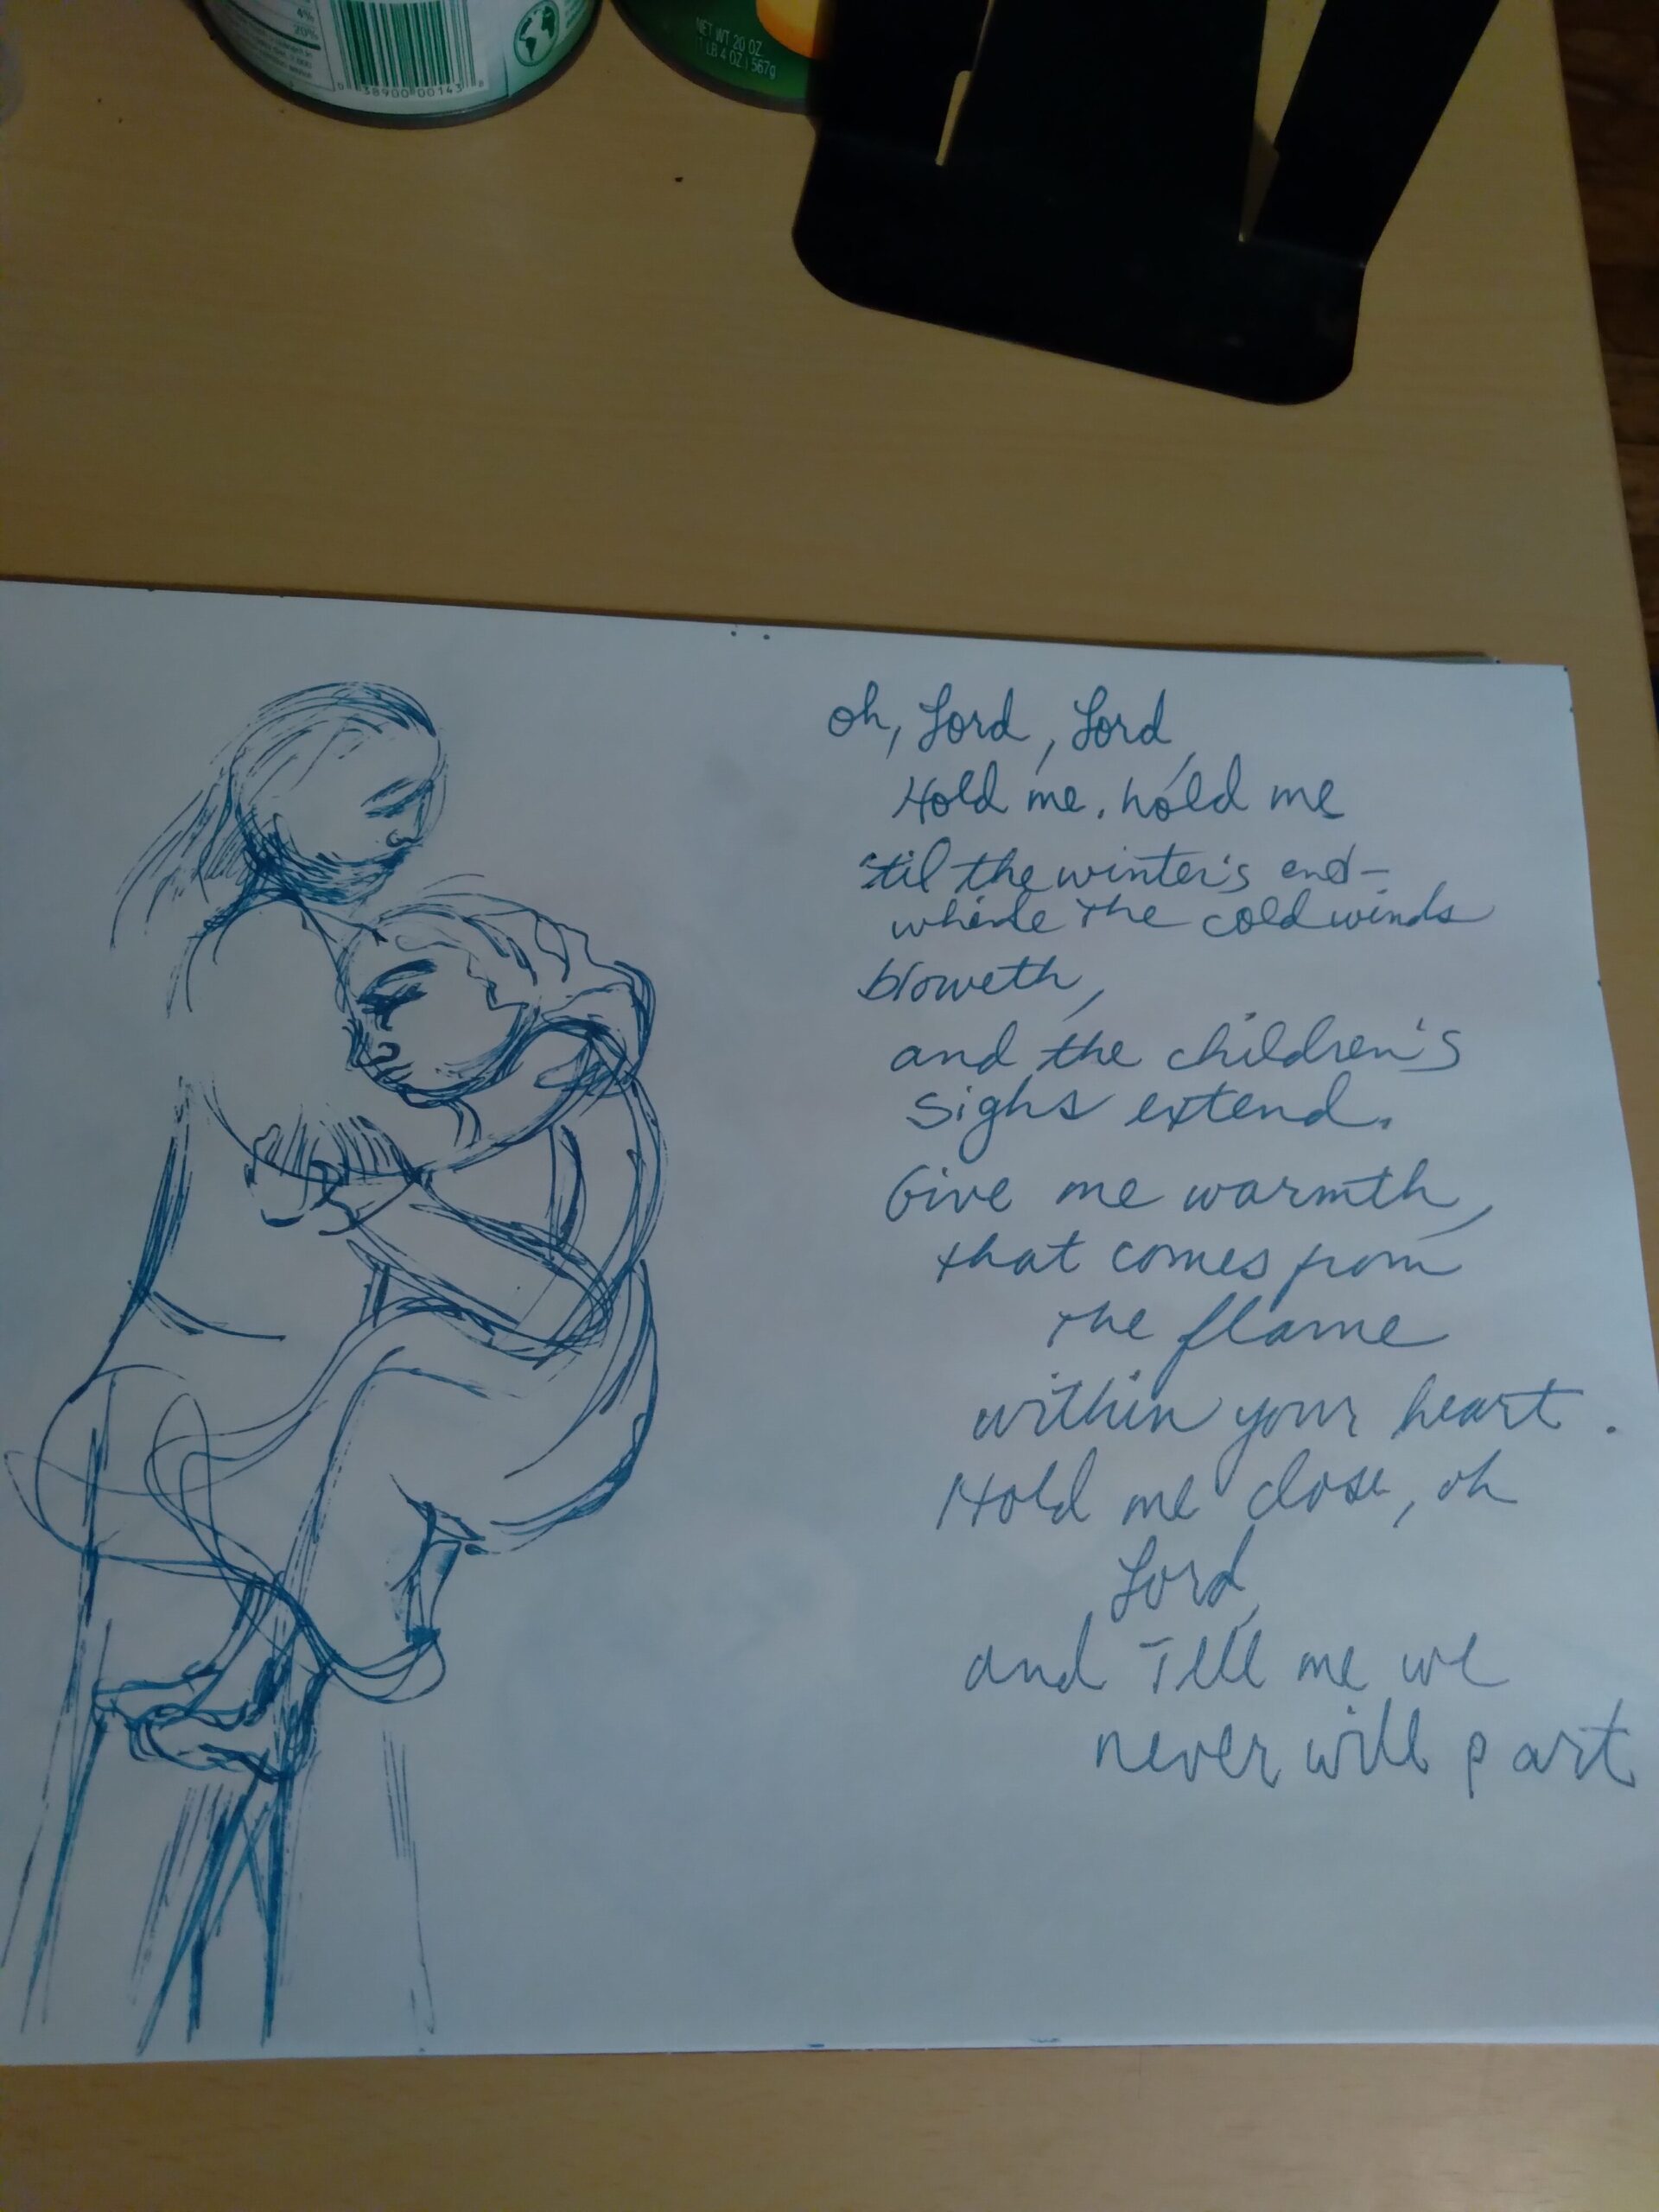 4%
20%
0 38900 00143 8
NET WT 20 OZ
(1 LB 4 OZ) 567g
oh, Lord, Lord,
Hold me, hold me
'til the winter's end-
where the cold winds
bloweth,
and the children's
sighs extend.
Give me warmth,
that comes from
the flame
within your heart.
Hold me close, oh
Lord,
and Tell me we
never will part